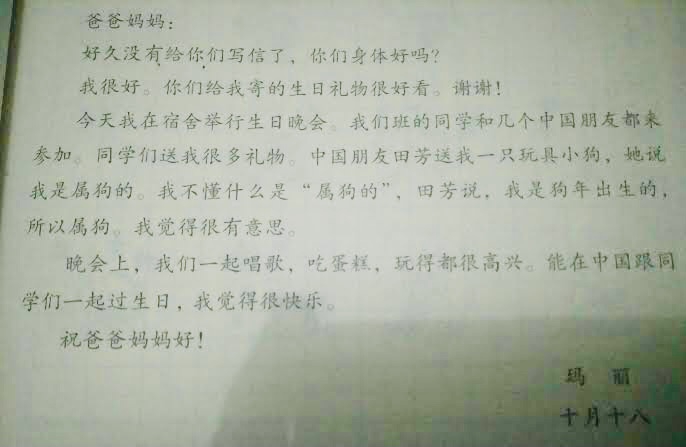 爸爸妈妈：
好久没有给你们写信了，你们身体好吗？
我很好。你们给我寄的生日礼物很好看。谢谢！
今天我在宿舍举行生日晚会。我们班的同学和几个中国朋友都来
参加。同学们送我很多礼物。中国朋友田芳送我一只玩具小狗，她说
我是属狗的。我不懂什么是“属狗的”，田芳说，我是狗年出生的，
所以属狗。我觉得很有意思。
晚会上，我们一起唱歌，吃蛋糕，玩得都很高兴。能在中国跟同
学们一起过生日，我觉得很快乐。
祝爸爸妈妈好！
玛丽
十月十八